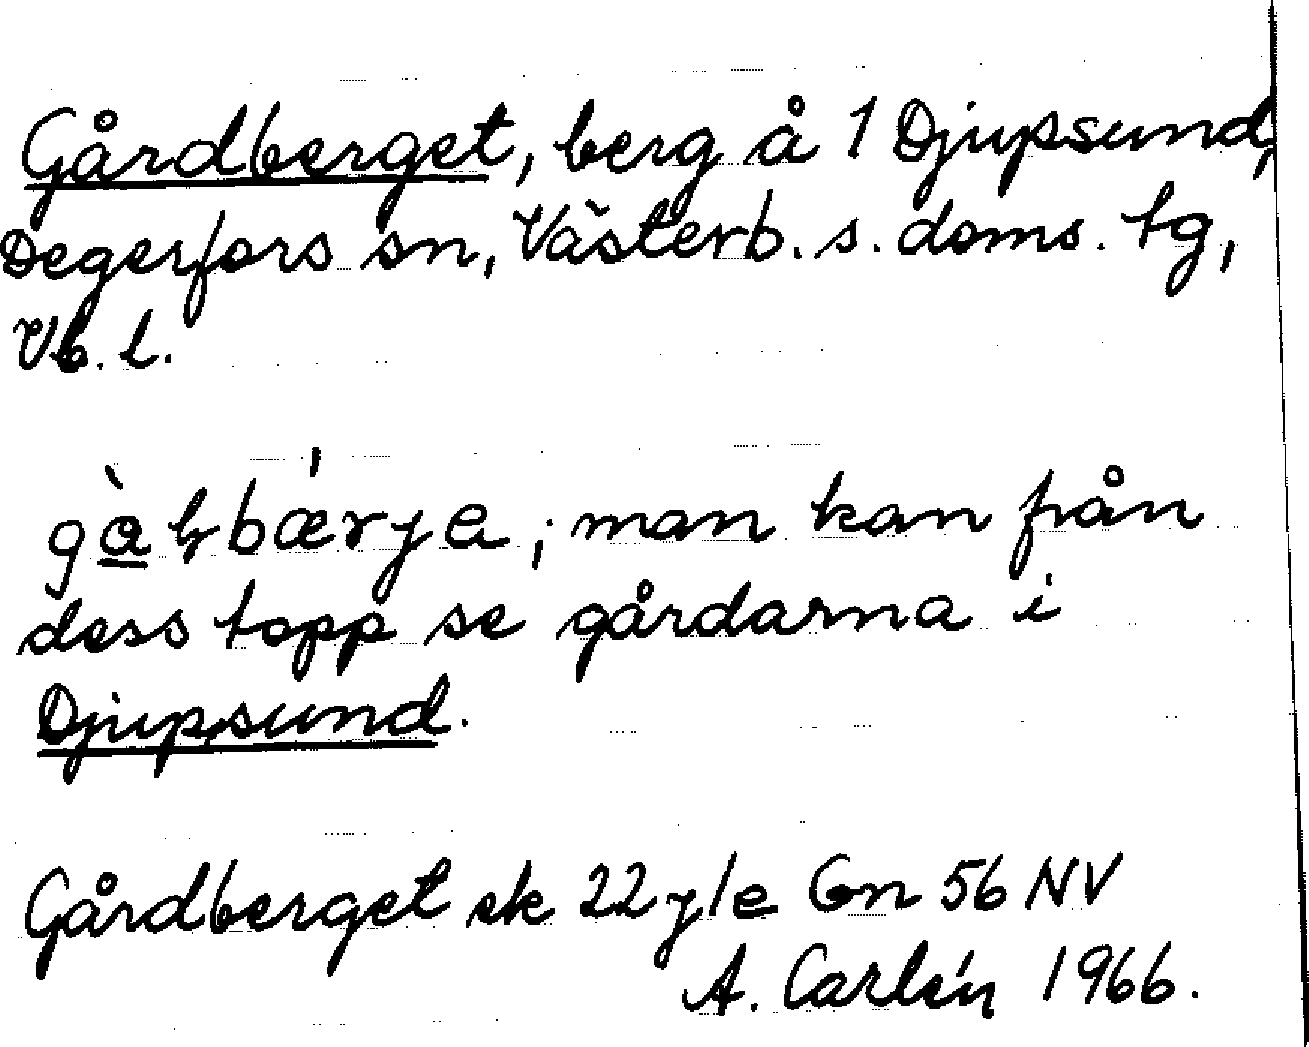 Gårdberget, berg å 1 Djupsund,
Degerfors sn, Västerb. s. doms. tg,
Vb. l.
man kan från
dess topp se gårdarna i
Djupsund.
Gårdberget ek 22 y/e Gn 56 NV
A. Carlén 1966.